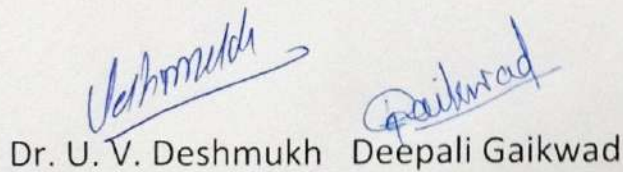 Deshmukh Gaikwad
Dr. U. V. Deshmukh Deepali Gaikwad